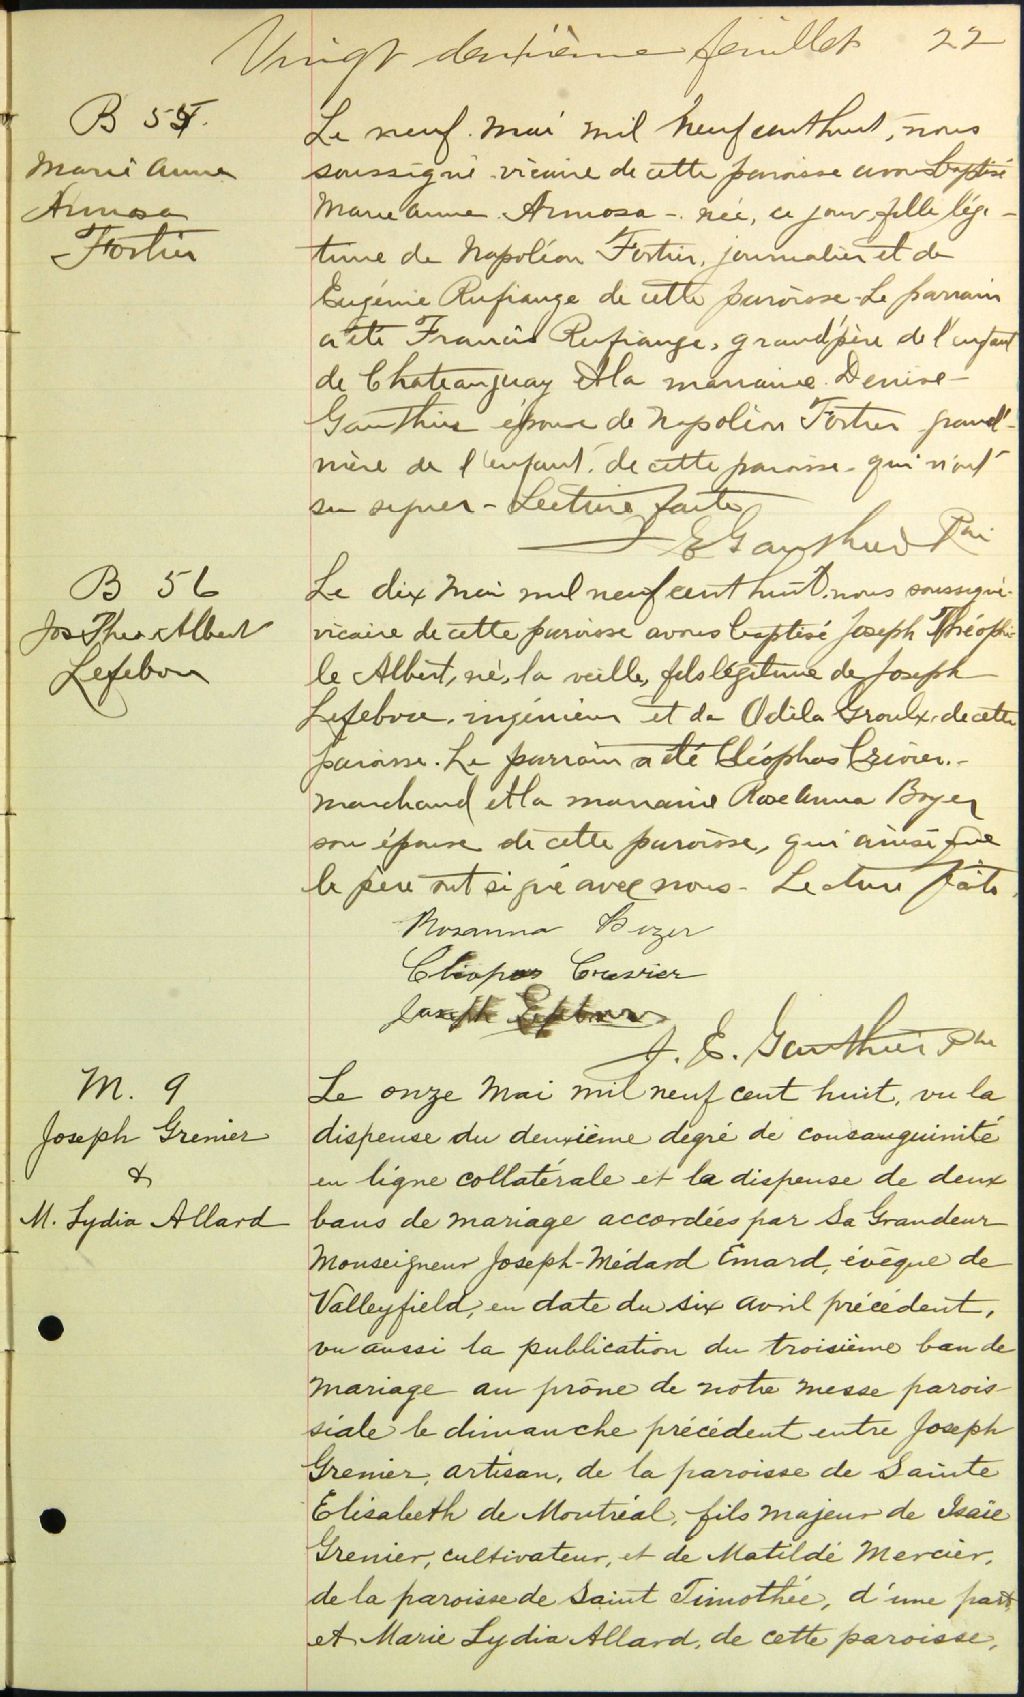 Vingt deuxième feuillet 22
B 55.
Marie Anne
Armosa
Fortier
Le neuf Mai mil neuf cent huit, nous
soussigné vicaire de cette paroisse avons baptisé
Marie Anne Armosa - née, ce jour, fille légi-
time de Napoléon Fortier, journalier et de
Eugénie Rufiange de cette paroisse - Le parrain
a été Francis Rufiange, grand'père de l'enfant
de Chateauguay et la marraine Denise
Gauthier épouse de Napoléon Fortier grand'-
mère de l'enfant de cette paroisse - qui n'ont
su signer - Lecture faite
J E Gauthier Ptre
B 56
Jos Theo Albert
Lefebvre
Le dix Mai mil neuf cent huit, nous soussigné
vicaire de cette paroisse avons baptisé Joseph Théophi-
le Albert, né, la veille, fils légitime de Joseph
Lefebvre, ingénieur et de Odila Groulx, de cette
paroisse. Le parrain a été Cléophas Crevier -
marchand et la marraine Rose Anna Boyer
son épouse de cette paroisse, qui ainsi que
le père ont signé avec nous - Lecture faite.
Rosanna Boyer
Cléopas Crevier
Joseph Lefebvre
J. E. Gauthier Ptre
M. 9
Joseph Grenier
&
M. Lydia Allard
Le onze Mai mil neuf cent huit, vu la
dispense du deuxième degré de consanguinité
en ligne collatérale et la dispense de deux
bans de mariage accordées par Sa Grandeur
Monseigneur Joseph-Médard Emard, évêque de
Valleyfield, en date du six avril précédent,
vu aussi la publication du troisième ban de
mariage au prône de notre messe parois-
siale le dimanche précédent entre Joseph
Grenier, artisan, de la paroisse de Sainte
Elisabeth de Montréal, fils majeur de Isaïe
Grenier, cultivateur, et de Matilde Mercier,
de la paroisse de Saint Timothée, d'une part
et Marie Lydia Allard, de cette paroisse,